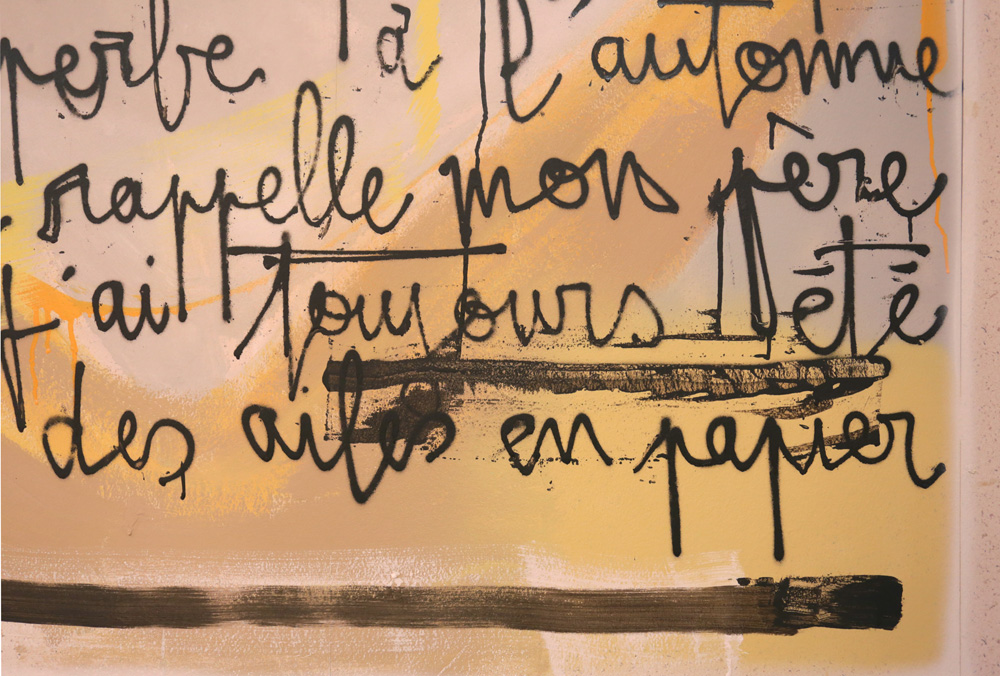 perbe à l'automne
rappelle mon père
j'ai toujours été
des ailes en papier